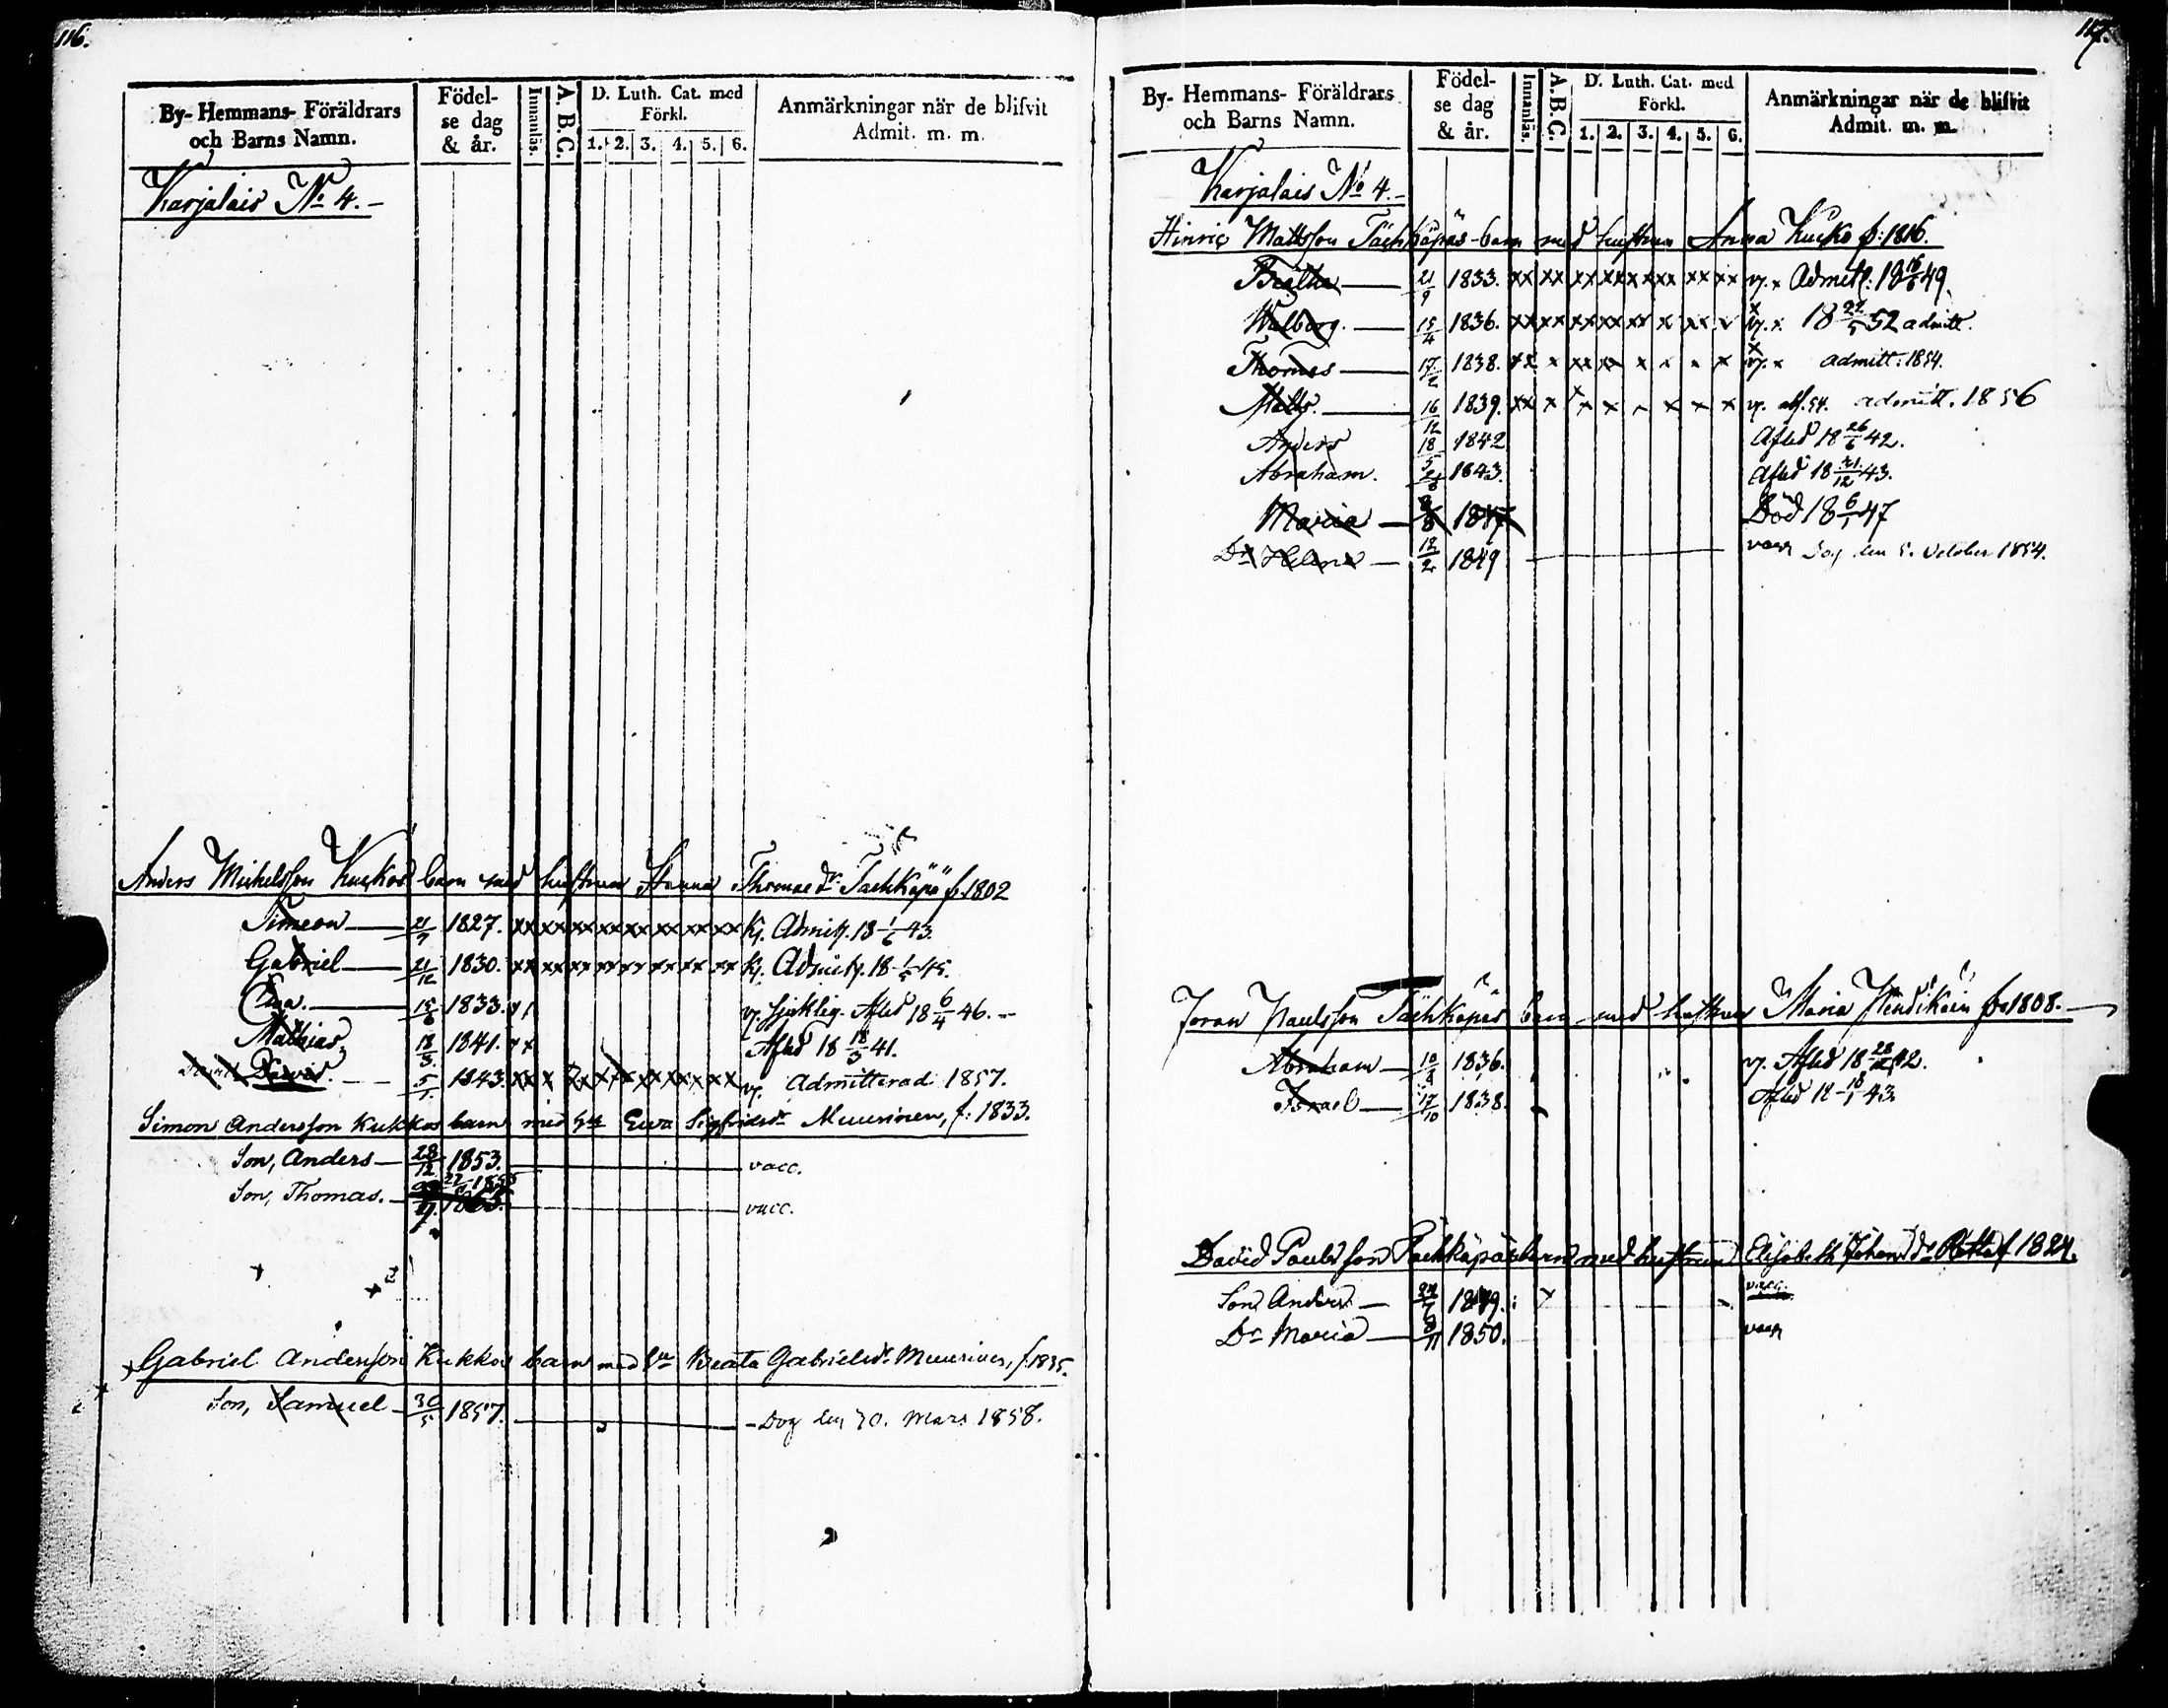 116.
By- Hemmans- Föräldrars
och Barns Namn.
Födel-
se dag
& år.
Innanläs.
A.B.C.
D. Luth. Cat. med
Förkl.
1. 2. 3. 4. 5. 6.
Anmärkningar när de blifvit
Admit. m. m.
Karjalais No 4.-
Anders Michelsson Kuckos barn med hustrun Hanna Thomaedr Tachkäpä f. 1802
Simeon 21/9 1827. xx xx xx xx xx xx xx xx Kj. Admitt. 18 1/6 43.
Gabriel 21/12 1830. xx xx xx xx xx xx xx xx Kj. Admitt. 18 1/5 45.
Ewa. 15/6 1833. v. Sjuklig. Afled 18 6/4 46.-
Mathias. 18/3 1841. Afled 18 18/3 41.
David David. 5/1 1843. v. Admitterad 1857.
Simon Andersson Kukkos barn med hu Ewa Sigfridsdr Muurinen, f: 1833.
Son, Anders 28/12 1853. vacc.
Son, Thomas. vacc.
Gabriel Andersson Kukkos barn med hu Beata Gabrielsdr Muurinen, f. 1835.
Son, Samuel 30/5 1857. Dog den 20. Mars 1858.
117.
By- Hemmans- Föräldrars
och Barns Namn.
Födel-
se dag
& år.
Innanläs.
A.B.C.
D. Luth. Cat. med
Förkl.
1. 2. 3. 4. 5. 6.
Anmärkningar när de blifvit
Admit. m. m.
Karjalais No 4.-
Hinric Mattsson Täckkäpäs barn med hustrun Anna Kucko f: 1816.
Beatha 21/9 1833. xx xx xx xx xx xx xx xx v. x Admitt: 18 16/6 49.
Walborg. 15/4 1836. xx xx xx xx xx x xx x v. x. 18 27/5 52 admitt.
Thomas 17/2 1838. v. x admitt: 1854.
Matts. 16/12 1839. v. admitt. 1856
Anders 18/5 1842 Afled 18 26/6 42.
Abraham. 1843. Afled 18 21/12 43.
Maria 1847 Död 18 6/1 47
Dr Helena 12/2 1849 vacc Dog den 5. October 1854.
Joran Paulsson Täckkäpäs barn med hustrun Maria Hendikäin f. 1808.
Abraham 10/8 1836. v. Afled 18 42.
Israel 17/10 1838. Afled 18 18/1 43.
David Paulsson Tachkäpäs barn med hustrun Elisabeth Johansdr f 1824.
Son Anders 1849. x vacc.
Dr Maria 8/11 1850. vacc